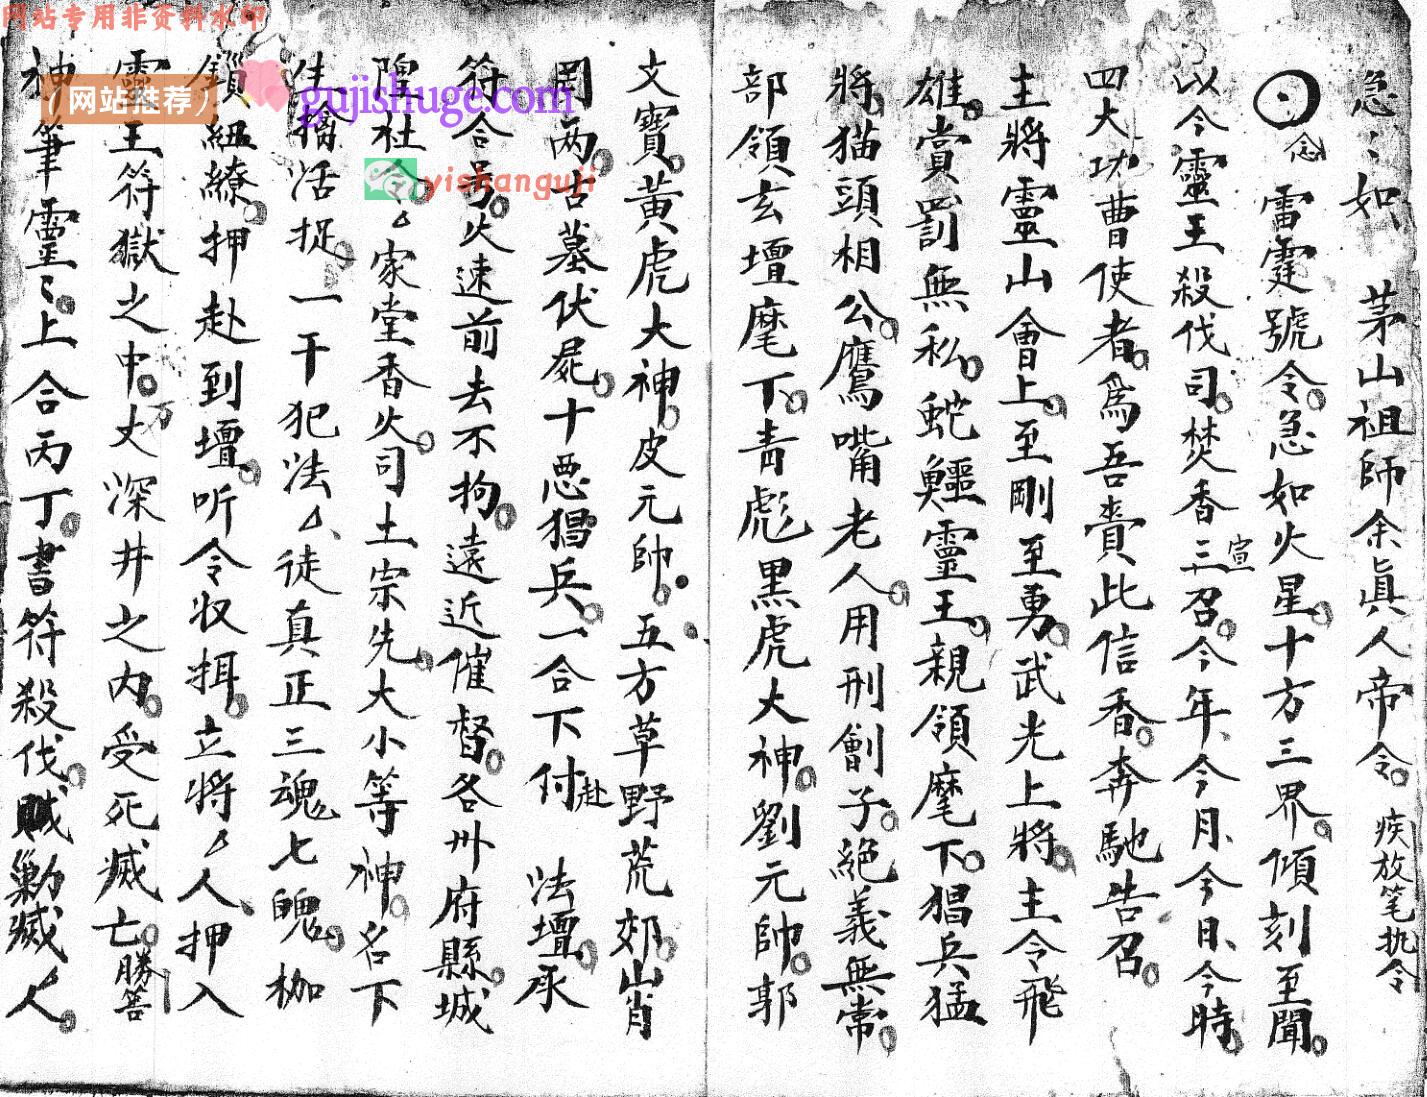 急〻如 茅山祖師余眞人帝令 疾放笔执令
念 雷霆號令急如火星十方三界傾刻至聞
以今靈王殺伐司焚香三宣召今年今月今日今時
四大功曹使者為吾賫此信香奔馳告召
主將靈山會上至剛至勇武光上將主令飛
雄賞罰無私蛇鱷靈王親領麾下猖兵猛
將猫頭相公鷹嘴老人用刑劊子絕義無常
部領玄壇麾下青彪黑虎大神劉元帥郭
文寶黃虎大神皮元帥五方草野荒郊山肖
岡兩古墓伏屍十惡猖兵一合下付赴 法壇承
符合号火速前去不拘遠近催督各州府縣城
隍社令厶家堂香火司土宗先大小等神名下
生擒活捉一干犯法厶徒真正三魂七魄枷
鎖紐繚押赴到壇听令收捏立將厶人押入
靈王符獄之中万丈深井之內受死滅亡 勝筈
神筆靈〻上合丙丁書符殺伐賊巢勦滅厶人
网站专用非资料水印
（网站推荐）
gujishuge.com
yishanguji